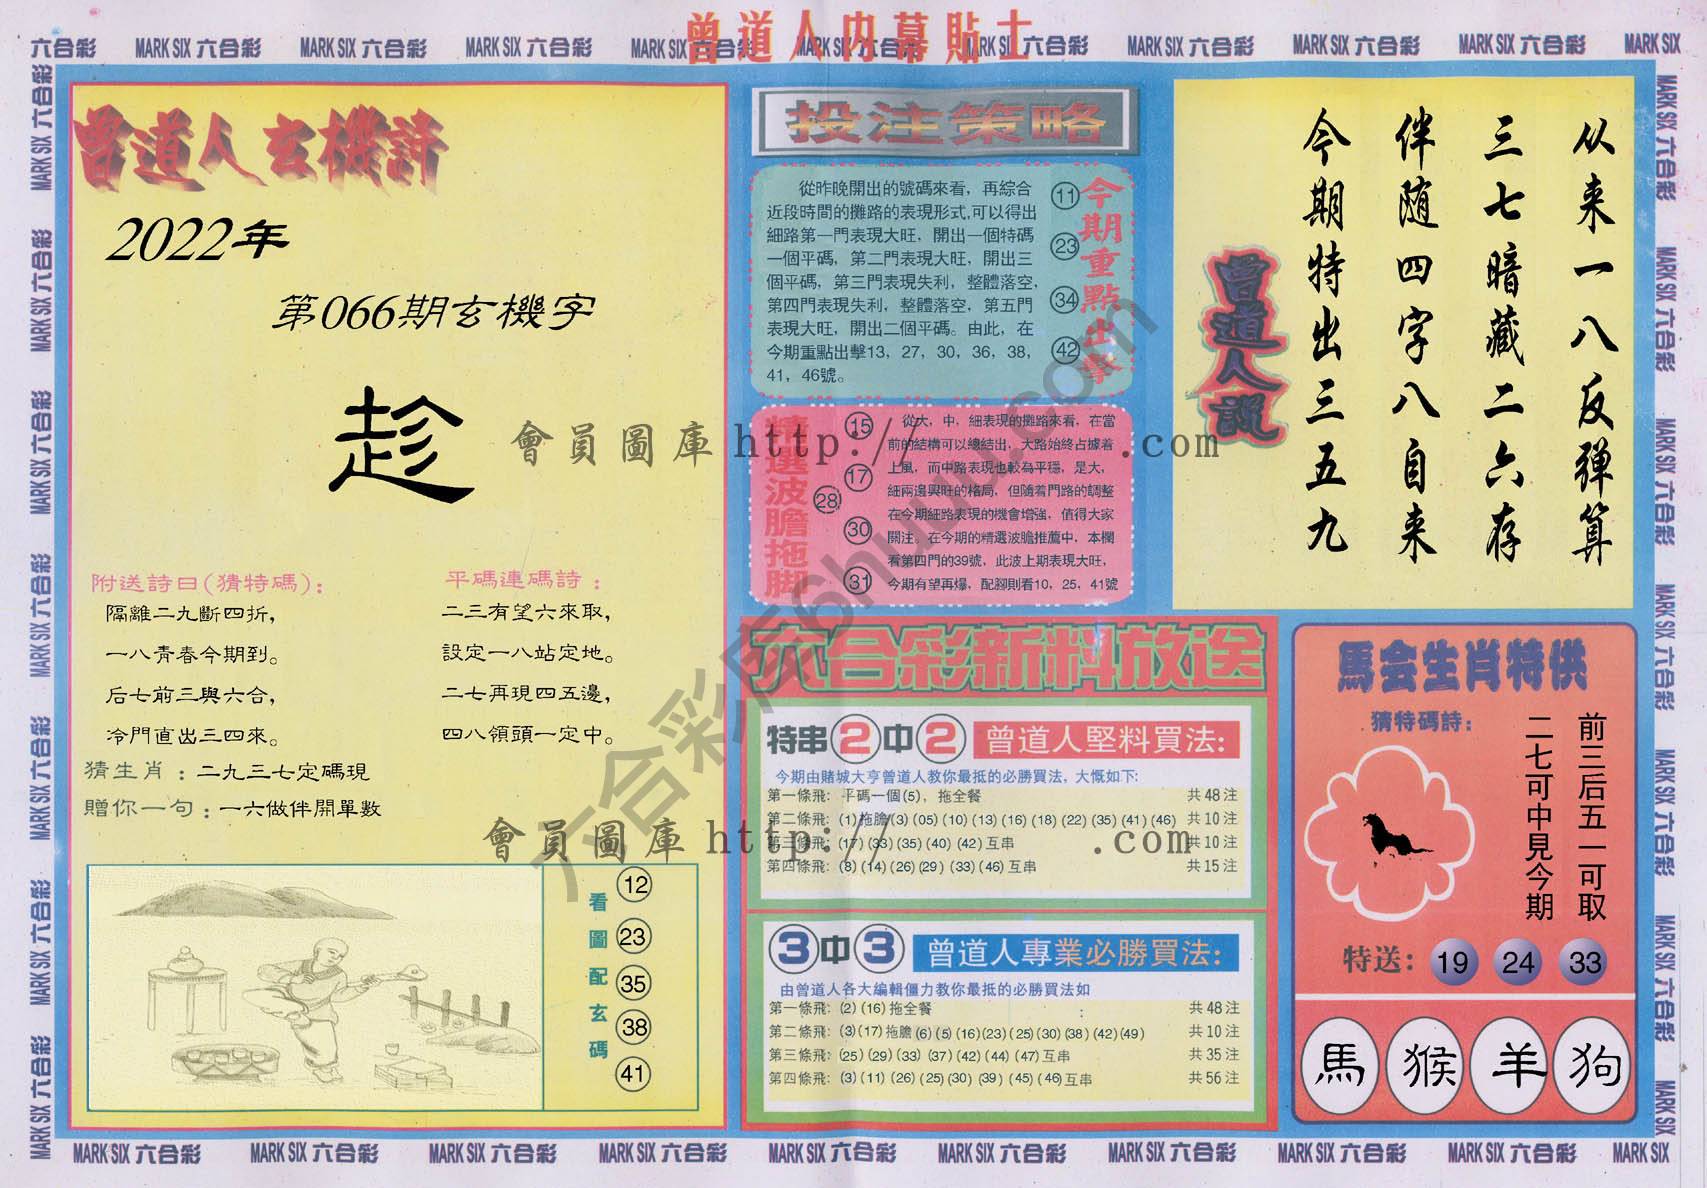 曾道人内幕貼士
六合彩 MARK SIX 六合彩 MARK SIX 六合彩 MARK SIX 六合彩 MARK SIX 六合彩 MARK SIX 六合彩 MARK SIX 六合彩 MARK SIX 六合彩 MARK SIX 六合彩 MARK SIX 六合彩 MARK SIX
曾道人玄機詩
2022年
第066期玄機字
趁
附送詩曰(猜特碼):
隔離二九斷四折,
一八青春今期到。
后七前三與六合,
冷門直出三四來。
平碼連碼詩:
二三有望六來取,
設定一八站定地。
二七再現四五邊,
四八領頭一定中。
猜生肖:二九三七定碼現
贈你一句:一六做伴開單數
看圖配玄碼
12
23
35
38
41
投注策略
從昨晚開出的號碼來看，再綜合
近段時間的攤路的表現形式,可以得出
細路第一門表現大旺，開出一個特碼
一個平碼，第二門表現大旺，開出三
個平碼，第三門表現失利，整體落空，
第四門表現失利，整體落空，第五門
表現大旺，開出二個平碼。由此，在
今期重點出擊13，27，30，36，38，
41，46號。
11
23
34
42
今期重點出擊
精選波膽拖脚
15
17
28
30
31
從大，中，細表現的攤路來看，在當
前的結構可以總結出，大路始終占據着
上風，而中路表現也較為平穩，是大，
細兩邊興旺的格局，但隨着門路的調整
在今期細路表現的機會增強，值得大家
關注。在今期的精選波膽推薦中，本欄
看第四門的39號，此波上期表現大旺，
今期有望再爆，配腳則看10，25，41號
从来一八反弹算
三七暗藏二六存
伴随四字八自来
今期特出三五九
曾道人說
六合彩新料放送
特串2中2 曾道人堅料買法:
今期由賭城大亨曾道人教你最抵的必勝買法，大慨如下:
第一條飛: 平碼一個(5)，拖全餐 共48注
第二條飛: (1)拖膽(3)(05)(10)(13)(16)(18)(22)(35)(41)(46) 共10注
第三條飛: (17)(33)(35)(40)(42)互串 共10注
第四條飛: (8)(14)(26)(29)(33)(46)互串 共15注
3中3 曾道人專業必勝買法:
由曾道人各大編輯僵力教你最抵的必勝買法如
第一條飛: (2)(16)拖全餐 共48注
第二條飛: (3)(17)拖膽(6)(5)(16)(23)(25)(30)(38)(42)(49) 共10注
第三條飛: (25)(29)(33)(37)(42)(44)(47)互串 共35注
第四條飛: (3)(11)(26)(25)(30)(39)(45)(46)互串 共56注
馬会生肖特供
猜特碼詩:
前三后五一可取
二七可中見今期
特送: 19 24 33
馬 猴 羊 狗
會員圖庫 http:// .com
會員圖庫 http:// .com
六合彩库6huu.com
MARK SIX 六合彩 MARK SIX 六合彩 MARK SIX 六合彩 MARK SIX 六合彩 MARK SIX 六合彩 MARK SIX 六合彩 MARK SIX 六合彩 MARK SIX 六合彩 MARK SIX 六合彩 MARK SIX